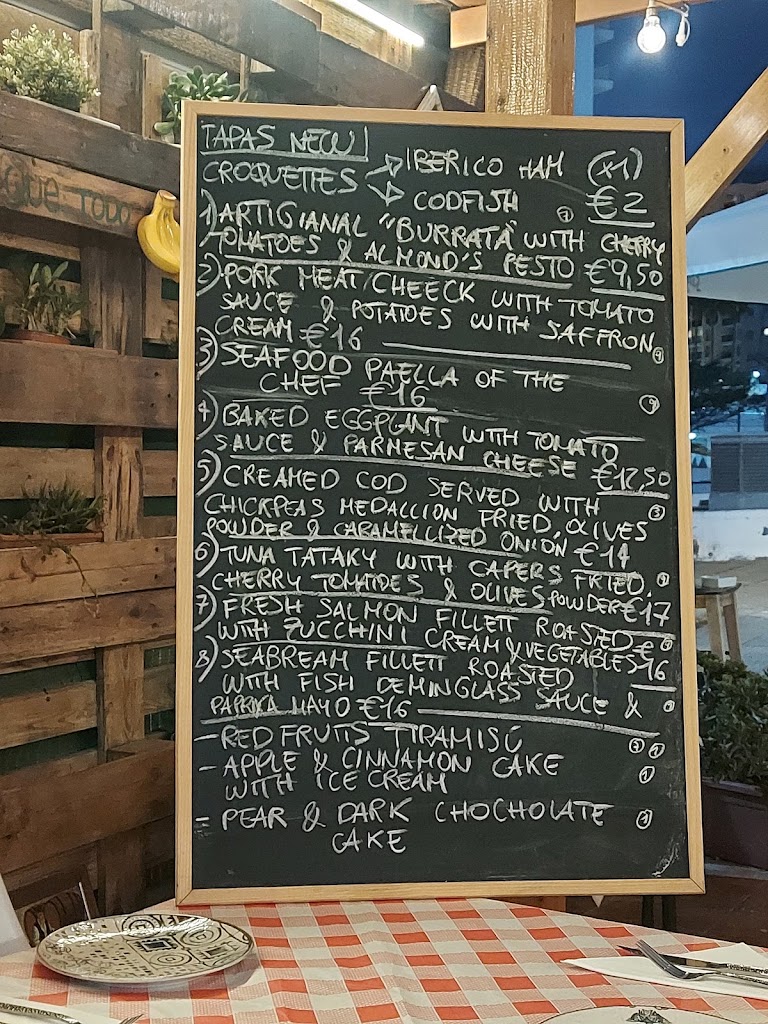 QUE TODO
TAPAS NEW!
CROQUETTES IBERICO HAM (x1)
CODFISH €2
1) ARTIGIANAL "BURRATA" WITH CHERRY
TOMATOES & ALMOND'S PESTO €9,50
2) PORK MEAT/CHEECK WITH TOMATO
SAUCE & POTATOES WITH SAFFRON
CREAM €16
3) SEAFOOD PAELLA OF THE
CHEF €16
4) BAKED EGGPLANT WITH TOMATO
SAUCE & PARMESAN CHEESE €12,50
5) CREAMED COD SERVED WITH
CHICKPEAS MEDALLION FRIED, OLIVES
POWDER & CARAMELLIZED ONION €14
6) TUNA TATAKY WITH CAPERS FRIED,
CHERRY TOMATOES & OLIVES POWDER €17
7) FRESH SALMON FILLETT ROASTED
WITH ZUCCHINI CREAM & VEGETABLES €16
8) SEABREAM FILLETT ROASTED
WITH FISH DEMINGLASS SAUCE &
PAPRIKA MAYO €16
- RED FRUITS TIRAMISÙ
- APPLE & CINNAMON CAKE
WITH ICE CREAM
- PEAR & DARK CHOCHOLATE
CAKE